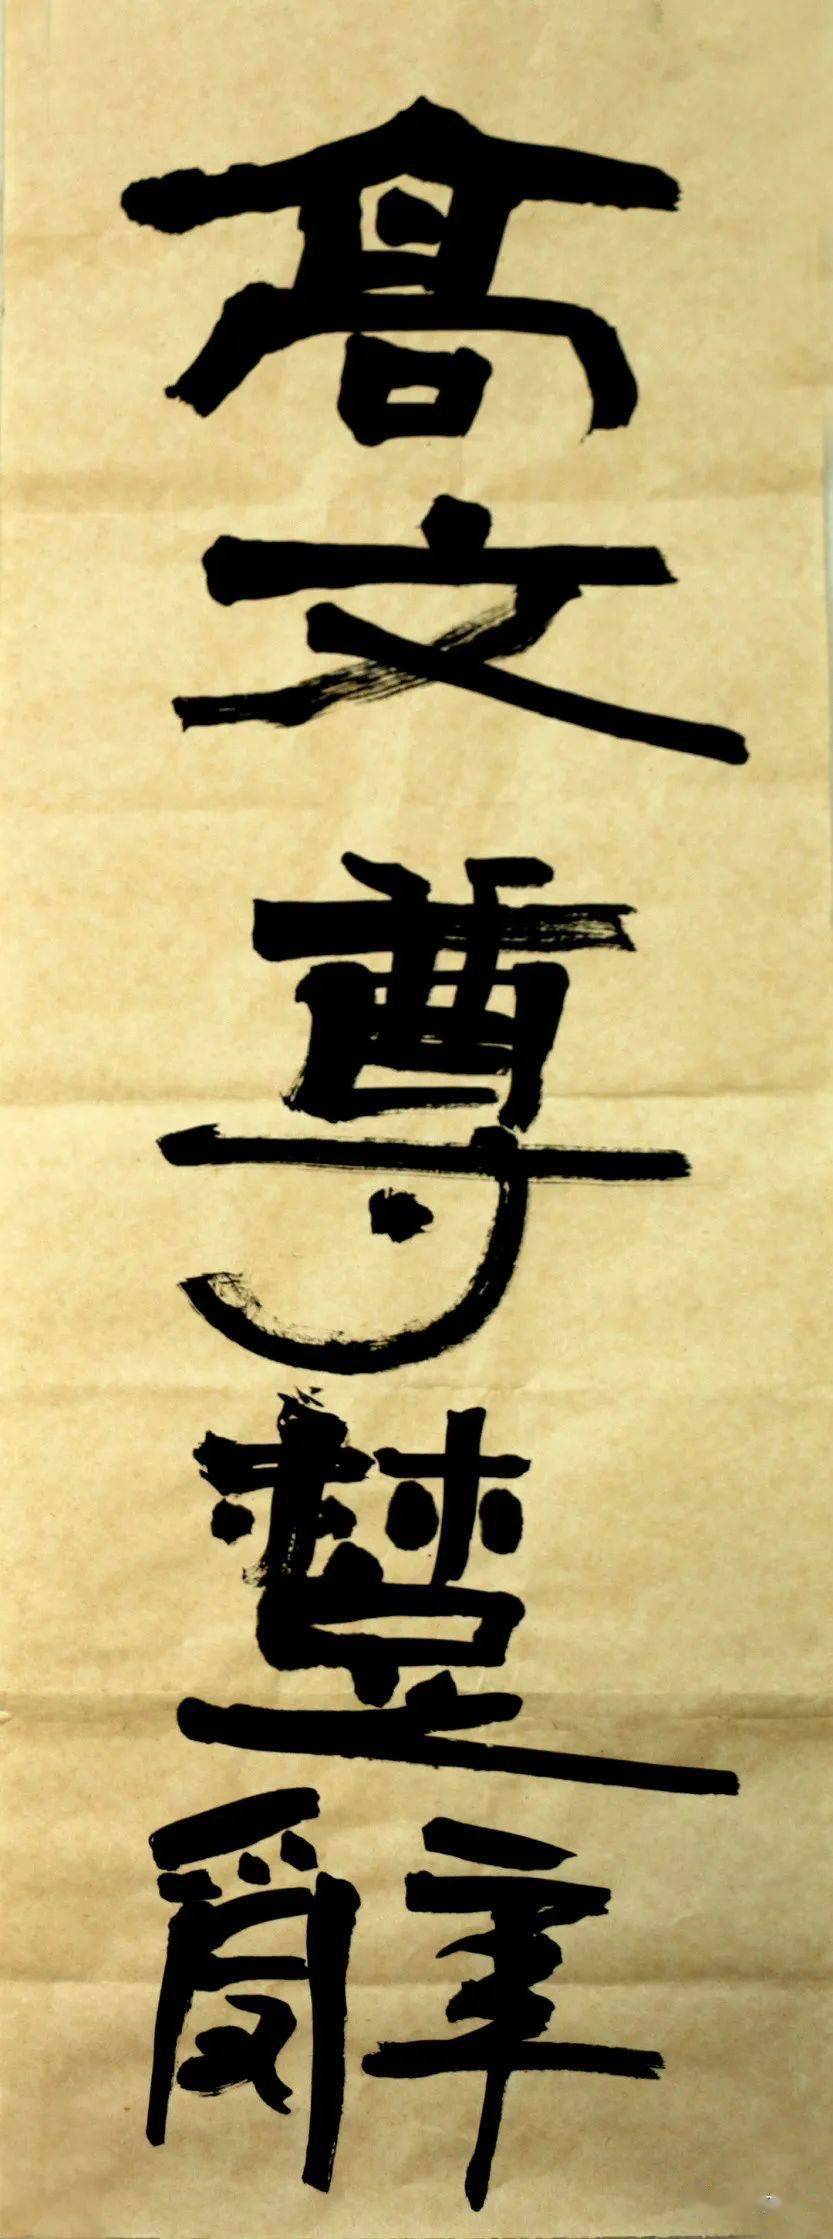 高文尊楚辭